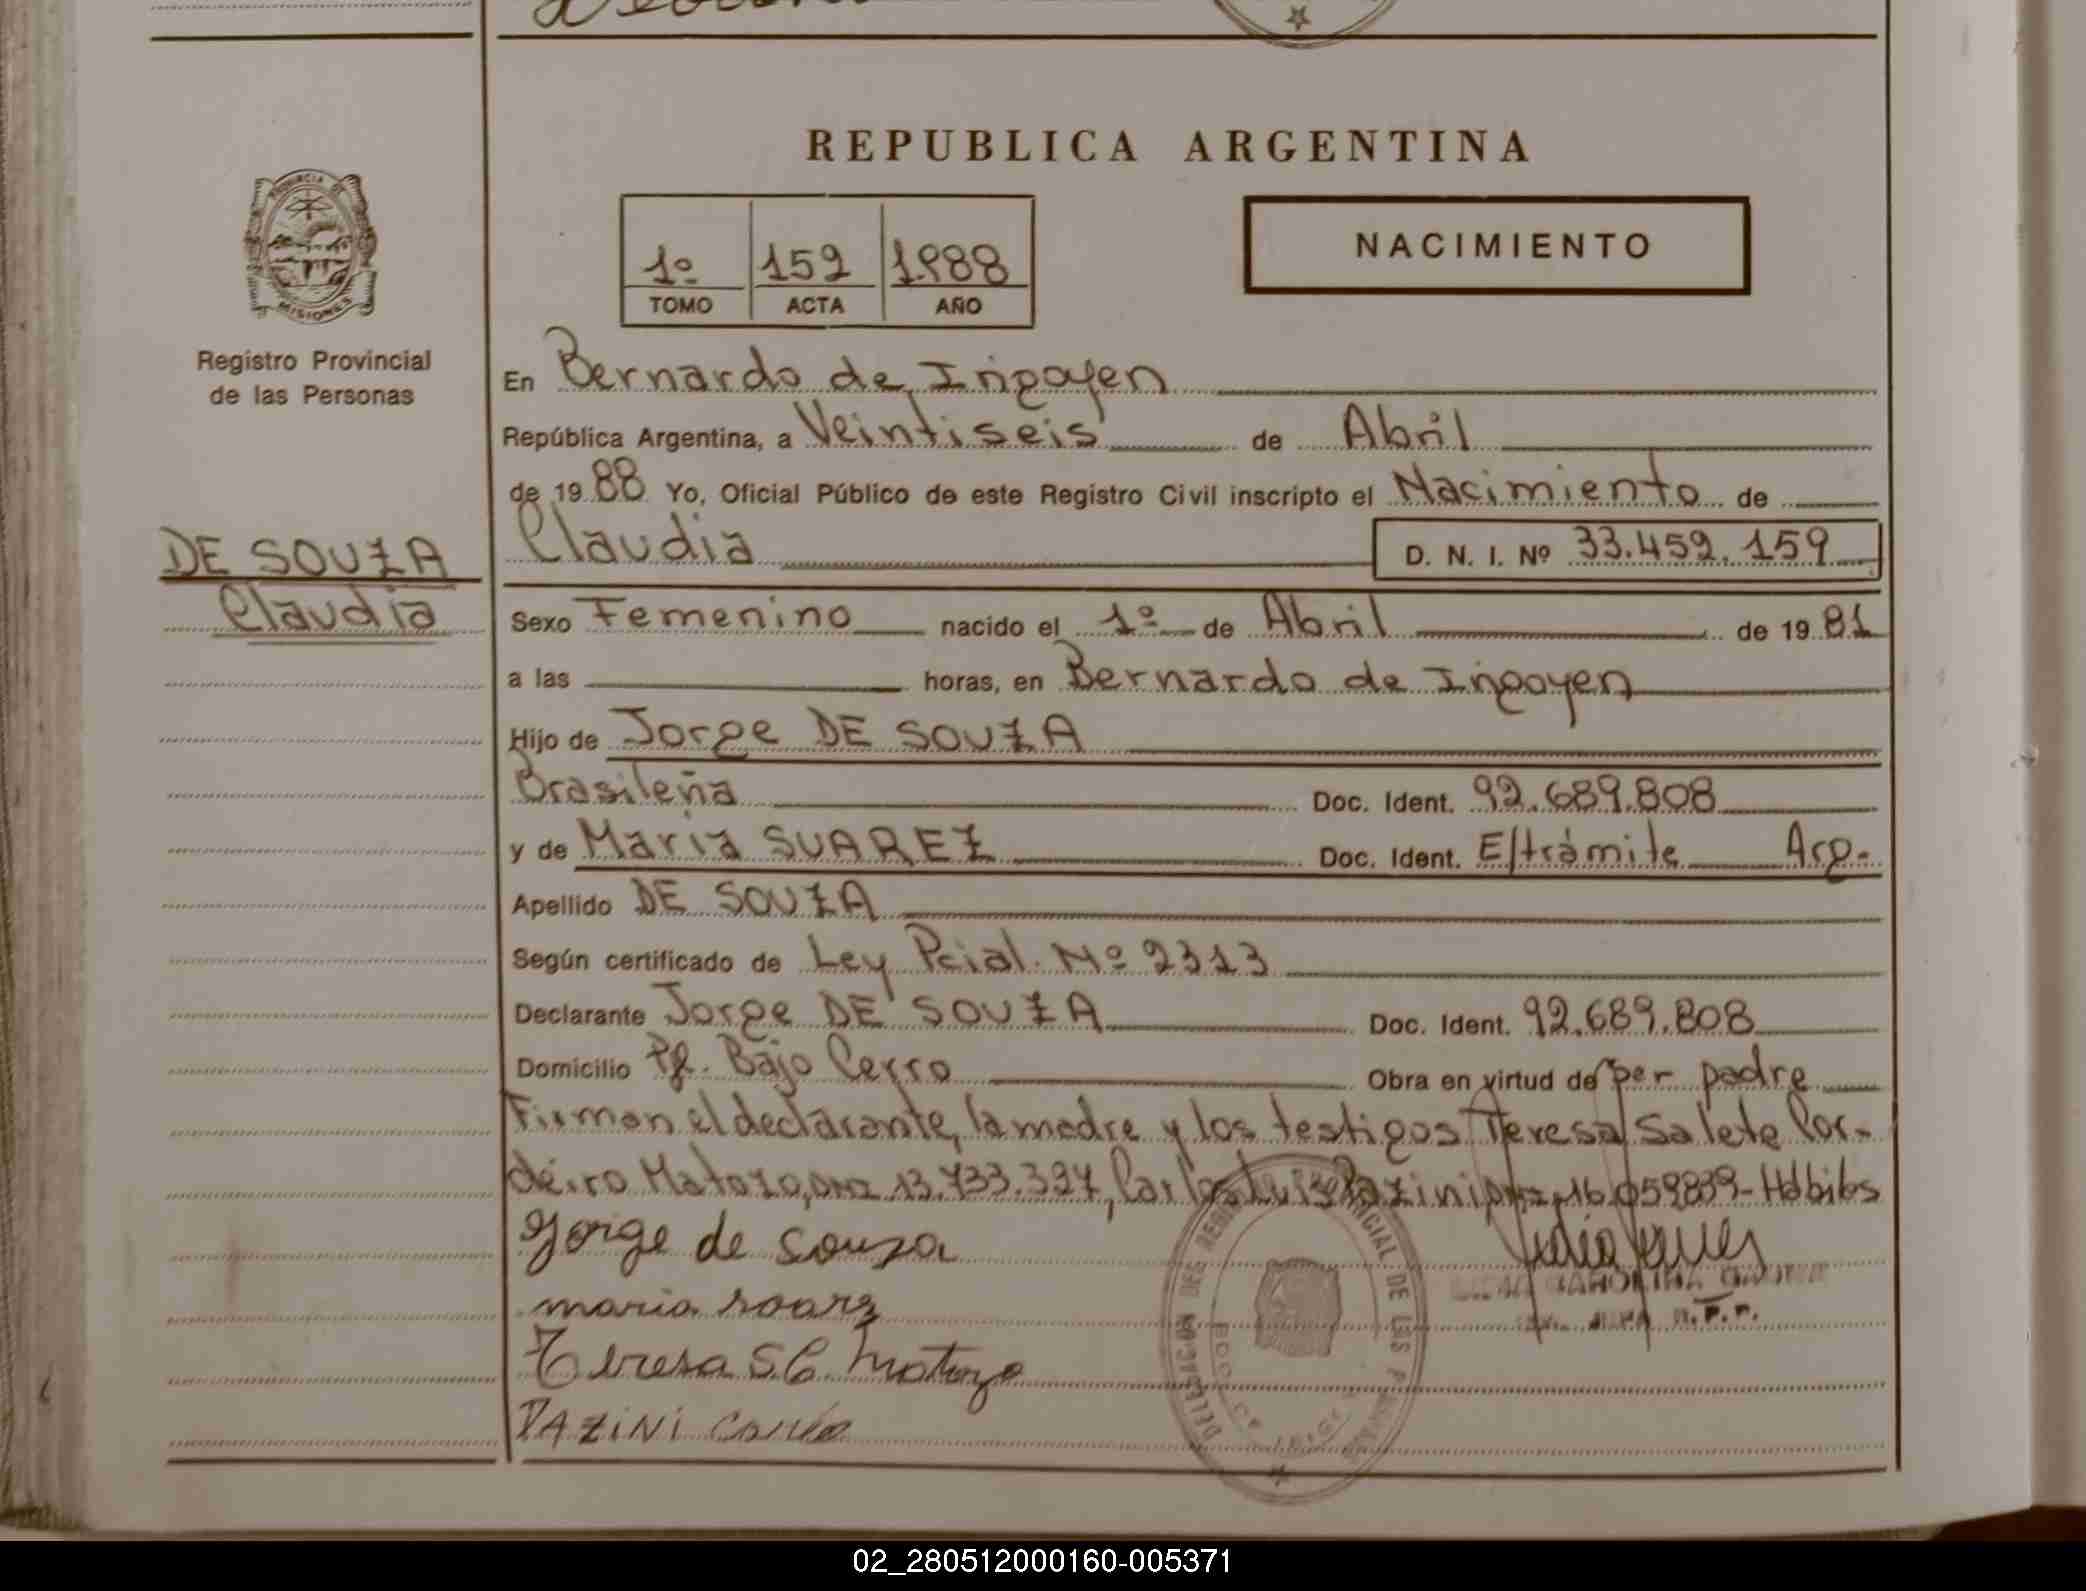 REPUBLICA ARGENTINA
PROVINCIA DE
MISIONES
Registro Provincial
de las Personas
1º 159 1.988
TOMO ACTA AÑO
NACIMIENTO
En Bernardo de Irigoyen
República Argentina, a Veintiseis de Abril
de 19 88 Yo, Oficial Público de este Registro Civil inscripto el Nacimiento de
Claudia D. N. I. Nº 33.459.159
DE SOUZA
Claudia
Sexo Femenino nacido el 1º de Abril de 19 81
a las horas, en Bernardo de Irigoyen
Hijo de Jorge DE SOUZA
Brasileña Doc. Ident. 92.689.808
y de Maria SUAREZ Doc. Ident. E/trámite Arg.
Apellido DE SOUZA
Según certificado de Ley Pcial. Nº 2313
Declarante Jorge DE SOUZA Doc. Ident. 92.689.808
Domicilio Pje. Bajo Cerro Obra en virtud de ser padre
Firman el declarante, la madre y los testigos Teresa Salete Cor-
deiro Matozo, DNI 13.733.327, Carlos Luis Pazini DNI 16.059839- Hábiles
Jorge de Souza
maria soarz
Teresa S.C. Matozo
PAZINI Carlos
02_280512000160-005371